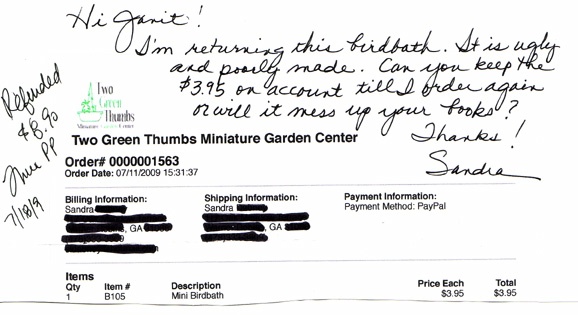 Hi Janit!
I'm returning this birdbath. It is ugly
and poorly made. Can you keep the
$3.95 on account till I order again
or will it mess up your books?
Thanks!
Sandra
Refunded
$8.90
Thru PP
7/18/9
Two
Green
Thumbs
Miniature Garden Center
Two Green Thumbs Miniature Garden Center
Order# 0000001563
Order Date: 07/11/2009 15:31:37
Billing Information:
Sandra
GA
Shipping Information:
Sandra
GA
Payment Information:
Payment Method: PayPal
Items
Qty Item # Description Price Each Total
1 B105 Mini Birdbath $3.95 $3.95